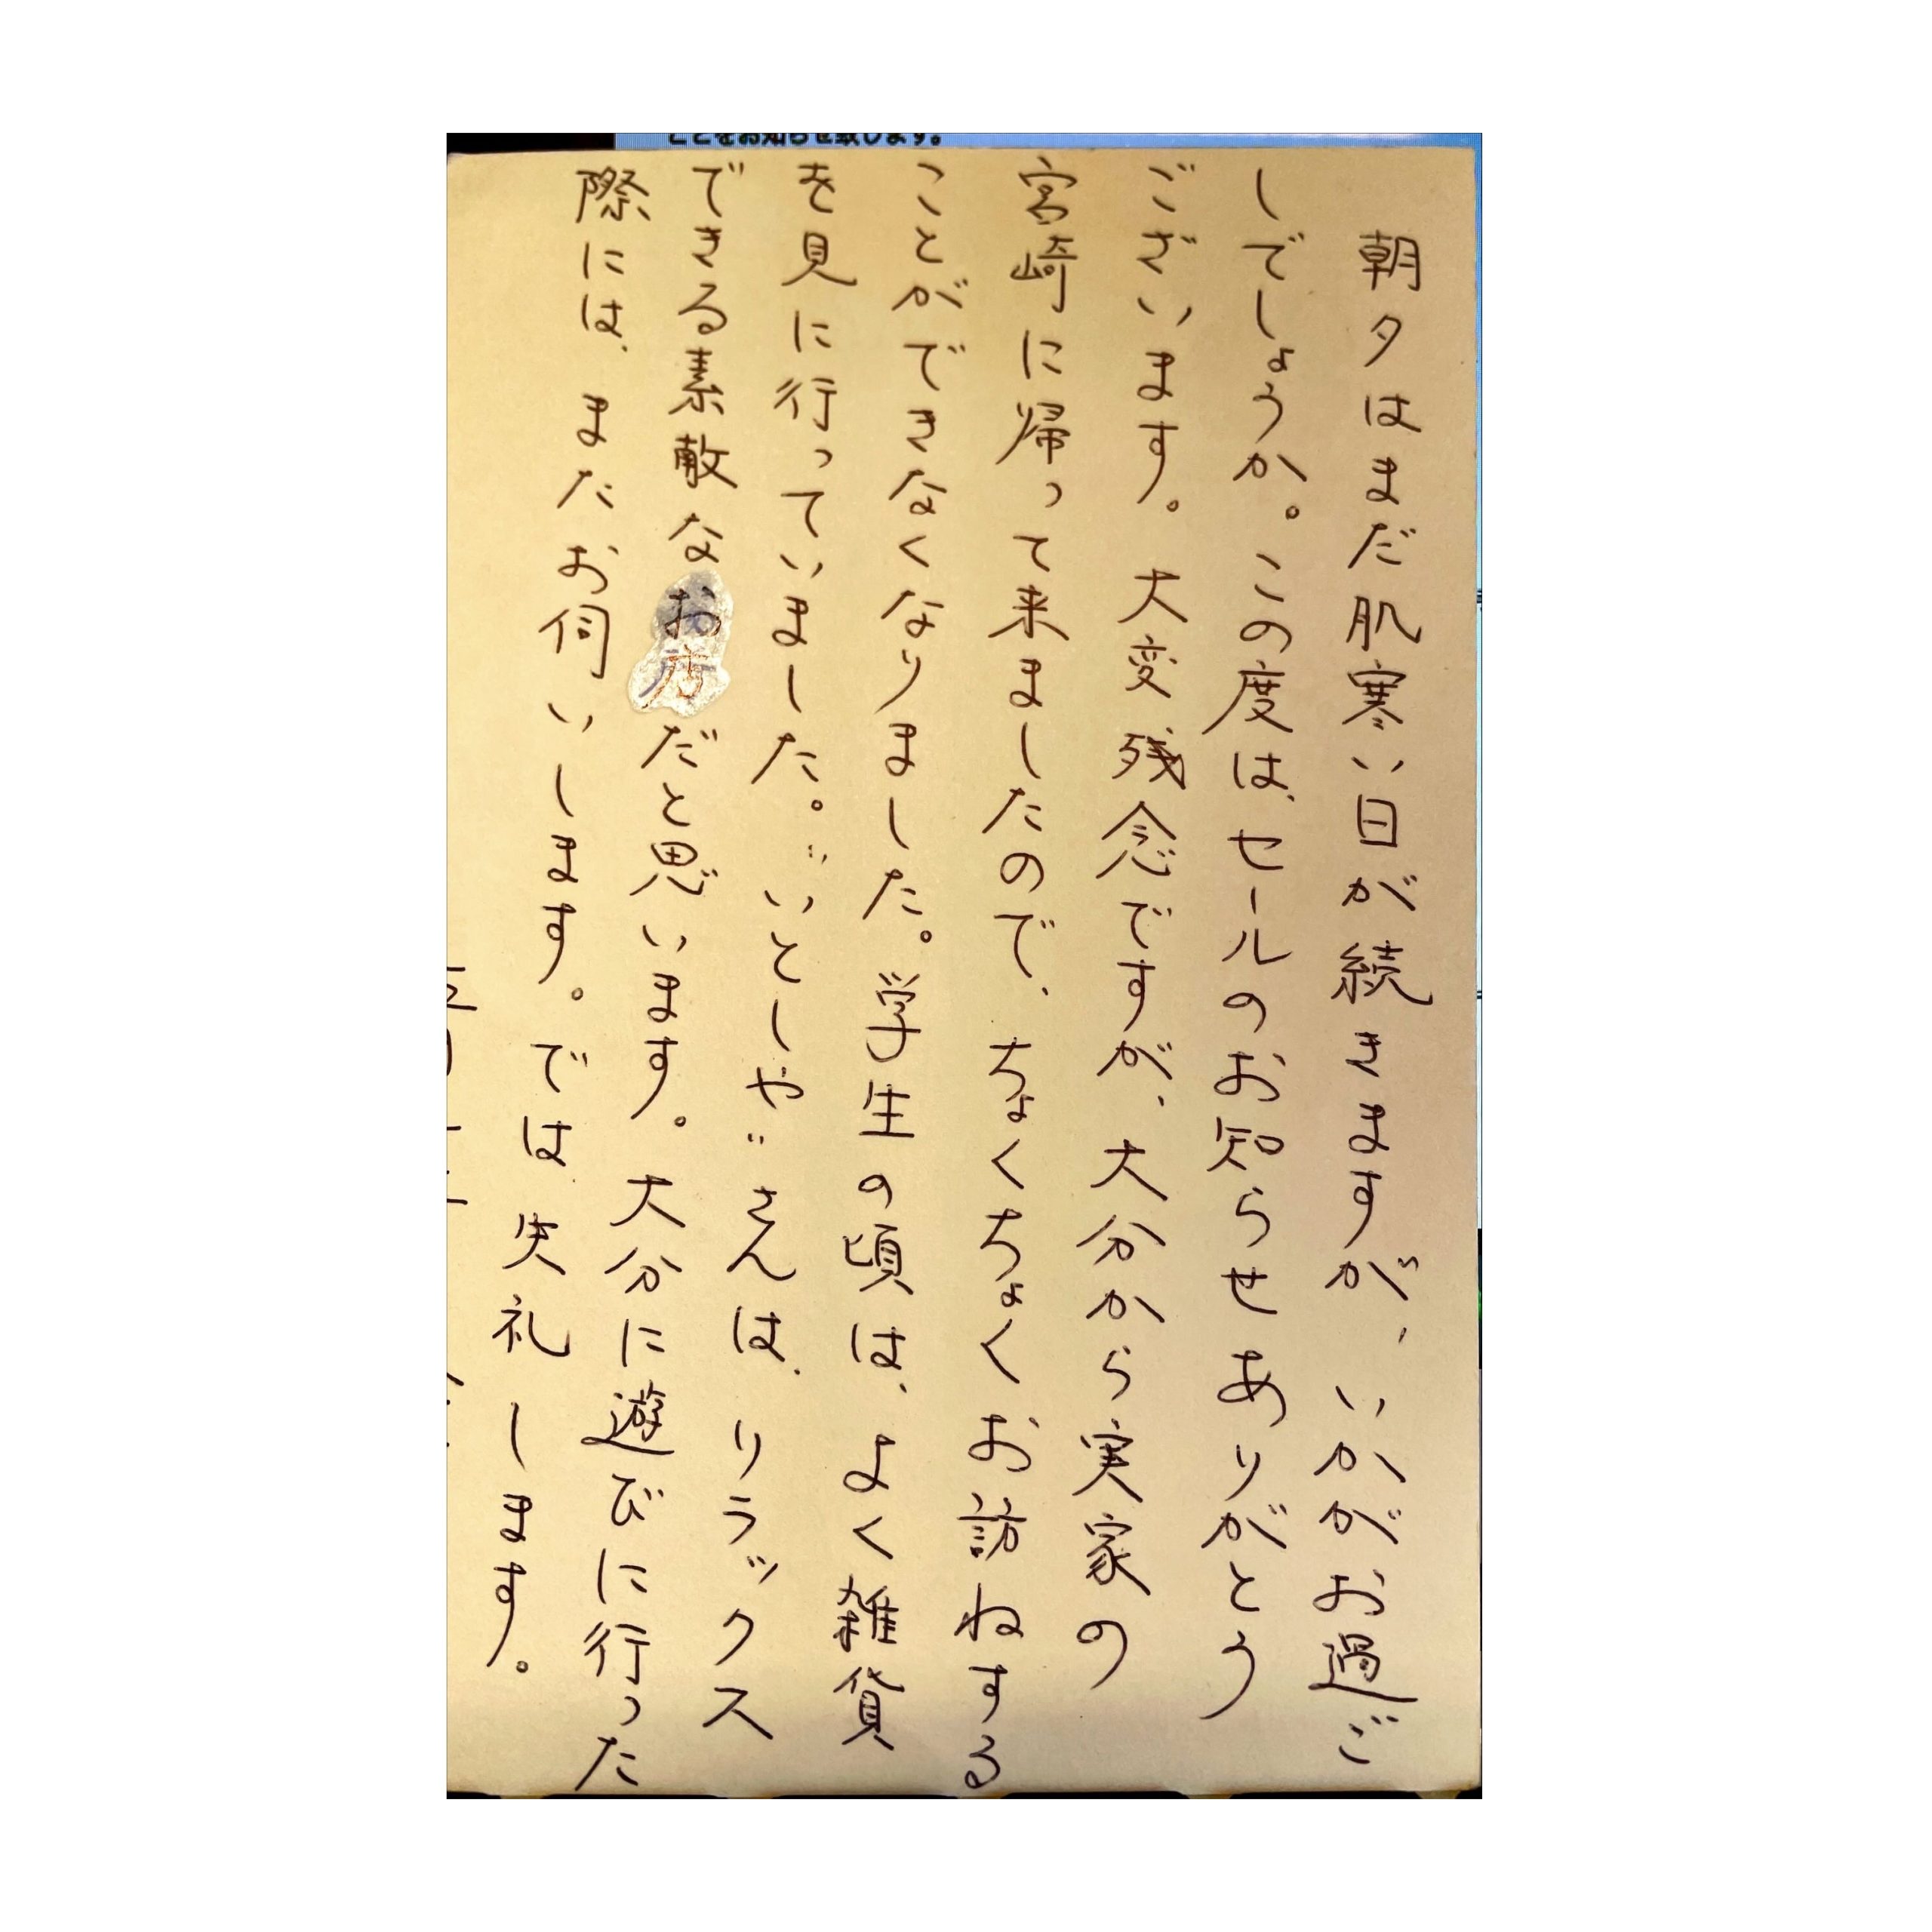 ことをお知らせ致します。
朝夕はまだ肌寒い日が続きますが、いかがお過ご
しでしょうか。この度は、セールのお知らせありがとう
ございます。大変残念ですが、大分から実家の
宮崎に帰って来ましたので、ちょくちょくお訪ねする
ことができなくなりました。学生の頃は、よく雑貨
を見に行っていました。〝いとしや〟さんは、リラックス
できる素敵なお店だと思います。大分に遊びに行った
際には、またお伺いします。では失礼します。